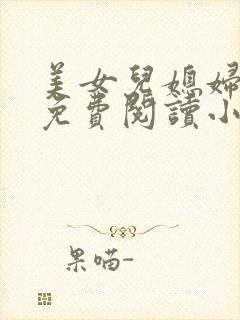 美女兒媳婦
免費閱讀小
果喵-